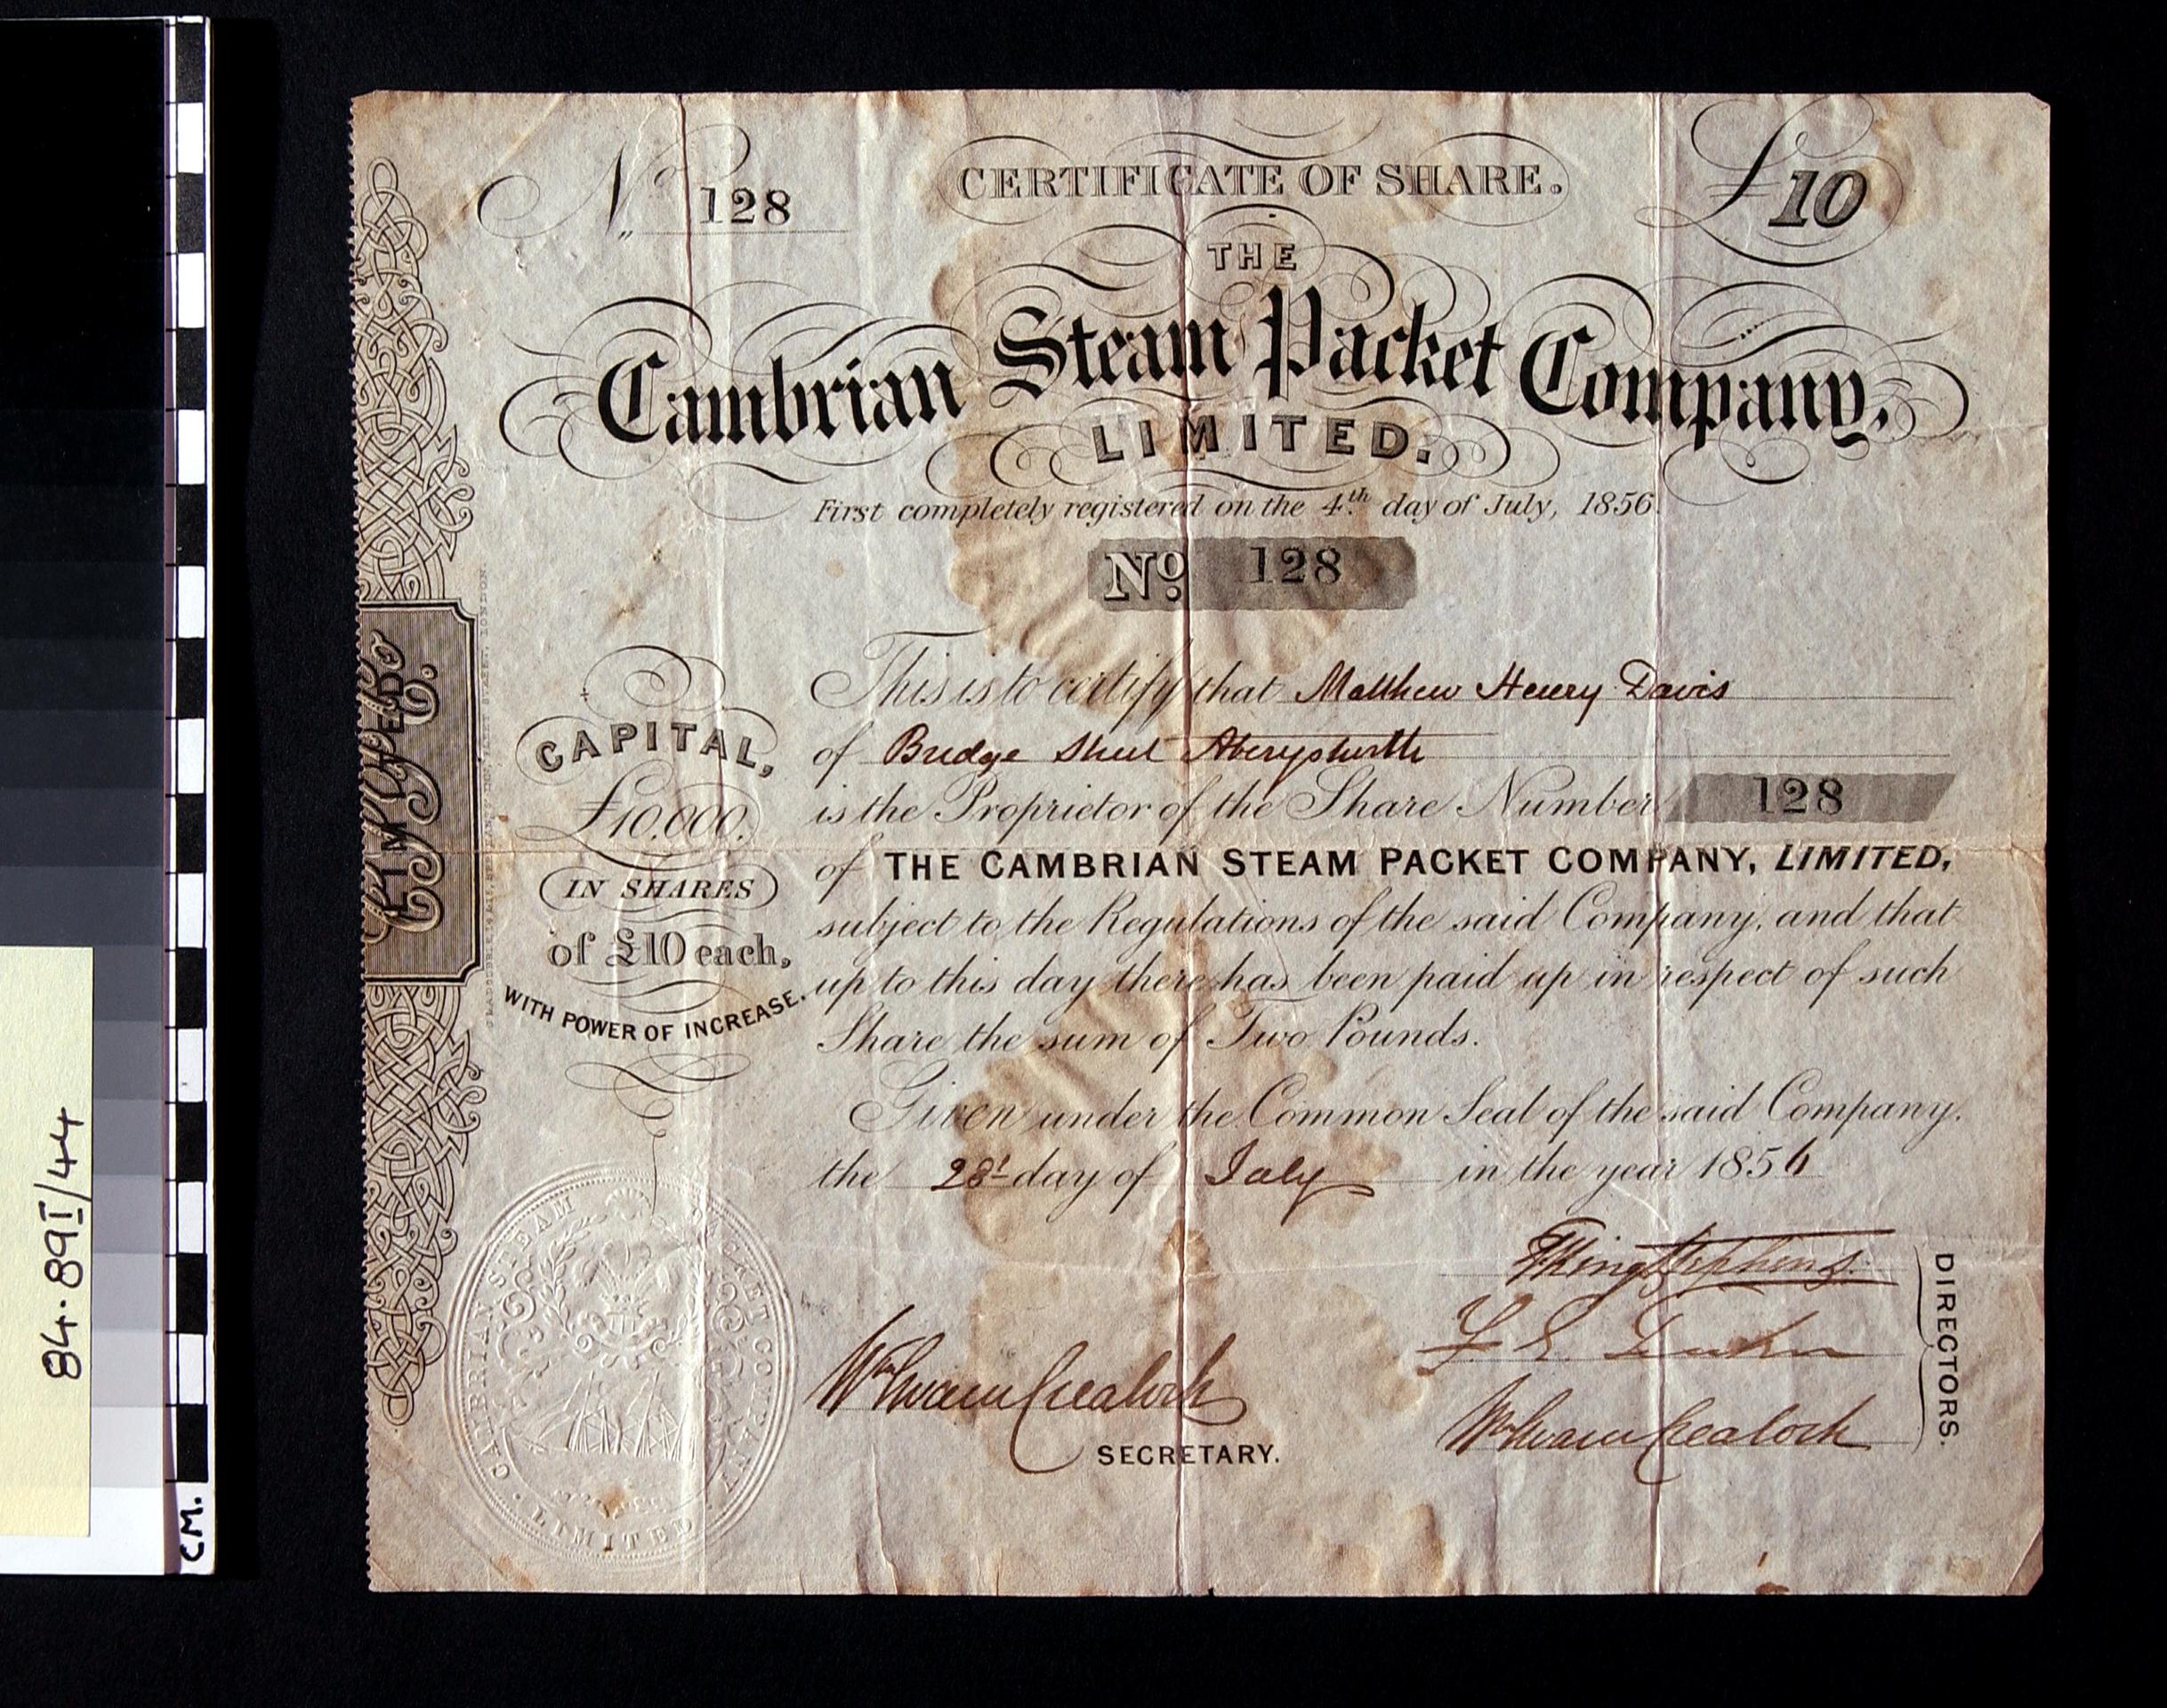 No 128
CERTIFICATE OF SHARE.
£10
THE
Cambrian Steam Packet Company,
LIMITED.
First completely registered on the 4th day of July, 1856.
No. 128
CAPITAL,
£10,000.
IN SHARES
of £10 each,
WITH POWER OF INCREASE.
This is to certify that Matthew Henry Davis
of Bridge Street Aberystwith
is the Proprietor of the Share Number 128
of THE CAMBRIAN STEAM PACKET COMPANY, LIMITED,
subject to the Regulations of the said Company, and that
up to this day there has been paid up in respect of such
Share the sum of Two Pounds.
Given under the Common Seal of the said Company.
the 28t day of July in the year 1856
Wm Swain Crealock
SECRETARY.
Stephens
F. E.
Wm Swain Crealock
DIRECTORS.
CAMBRIAN STEAM PACKET COMPANY
LIMITED
LIMITED
LONDON
84.89I/44
CM.